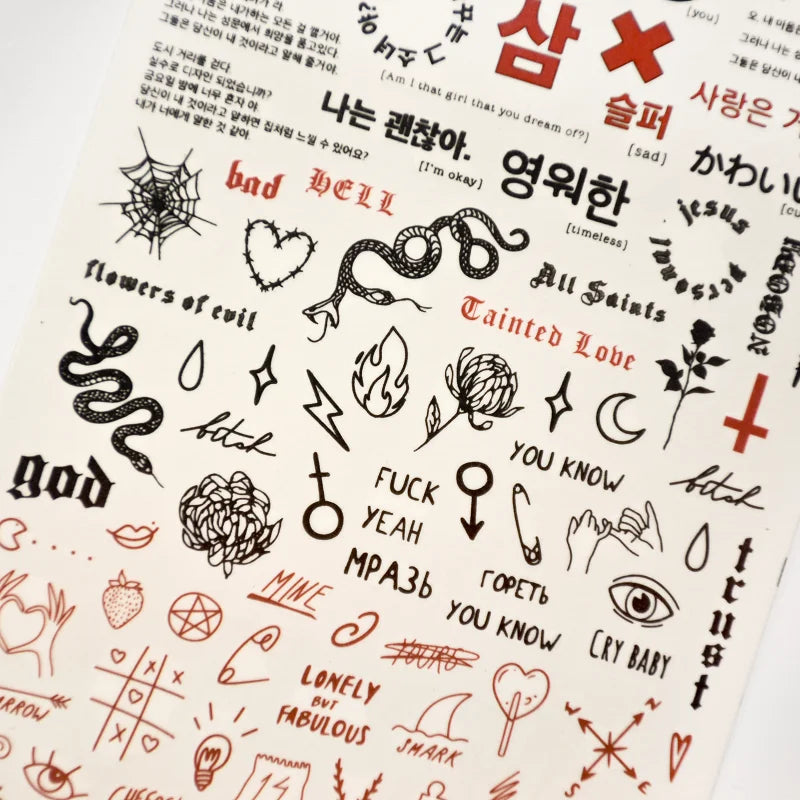 그러나 나는 성문에서 희망을 품고있다.
그들은 당신이 내 것이라고 말해 줄거야.
도시 거리를 걷다.
실수로 디자인 되었습니까?
금요일 밤에 너무 혼자 야.
당신이 내 것이라고 말하면 집처럼 느낄 수 있어요?
내가 너에게 말한 것 같아.
그 소녀야?
[Am I that girl that you dream of?]
삼
[you]
오, 내 마음은
그러나 나는
그들은 당신이
슬퍼
[sad]
사랑은
나는 괜찮아.
[I'm okay]
영원한
[timeless]
かわいい
bad
HELL
jesus
personal
flowers of evil
All Saints
Tainted Love
bitch
god
YOU KNOW
bitch
FUCK
YEAH
МРАЗЬ
ГОРЕТЬ
YOU KNOW
CRY BABY
trust
MINE
YOURS
LONELY
BUT
FABULOUS
SHARK
ARROW
N
W
E
S
14